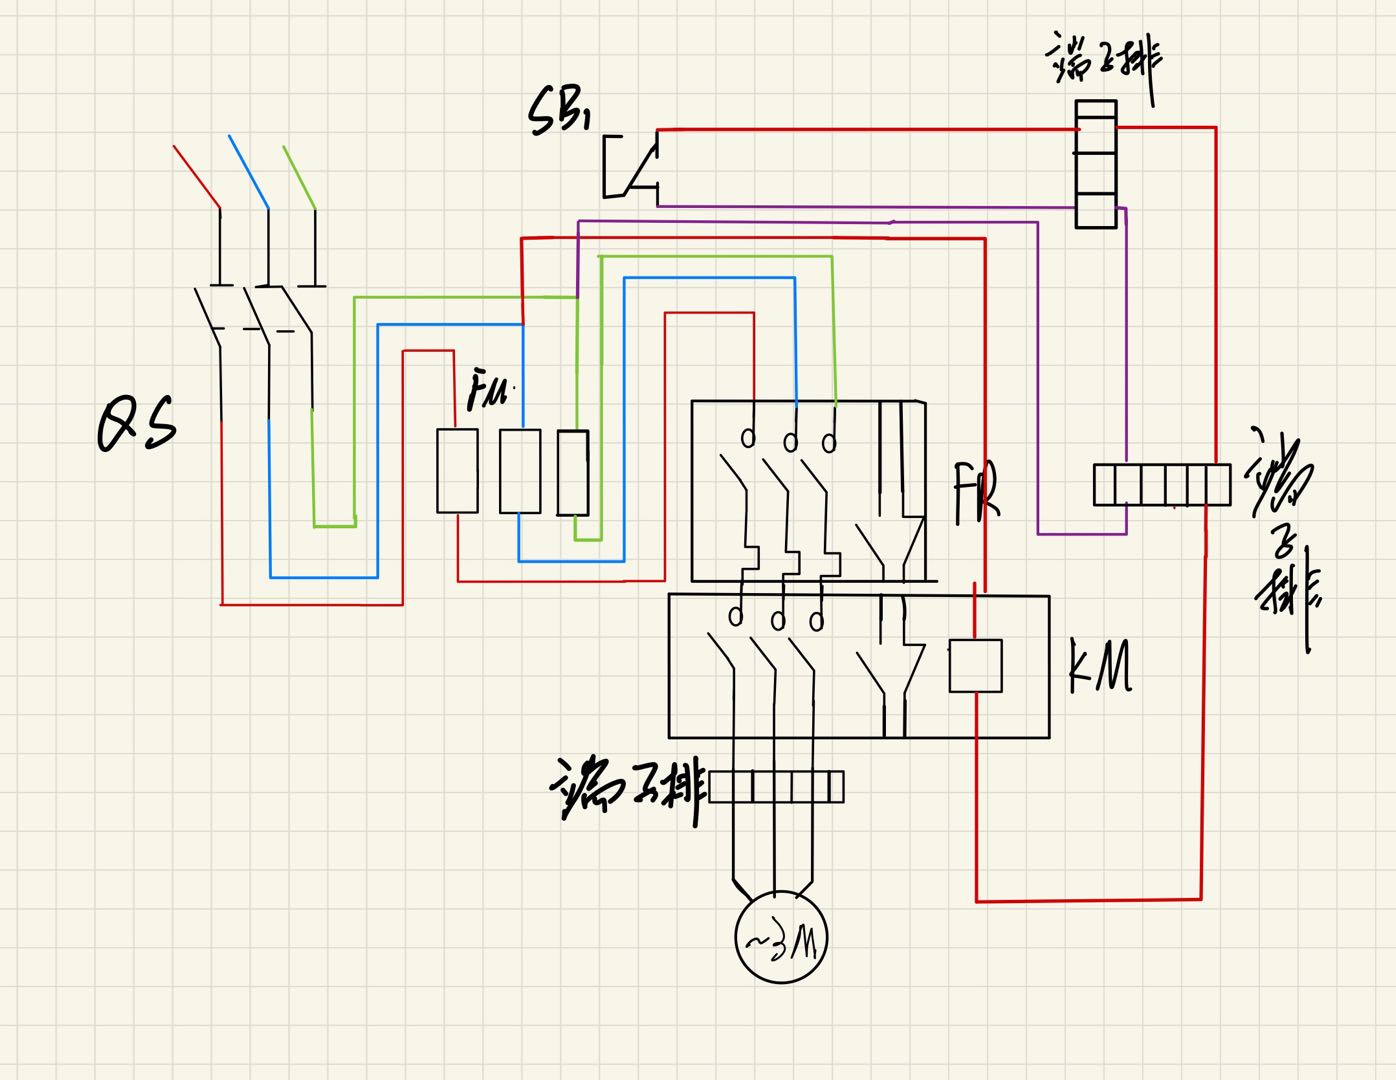 端子排
SB1
QS
FU
FR
端子排
KM
端子排
~3M